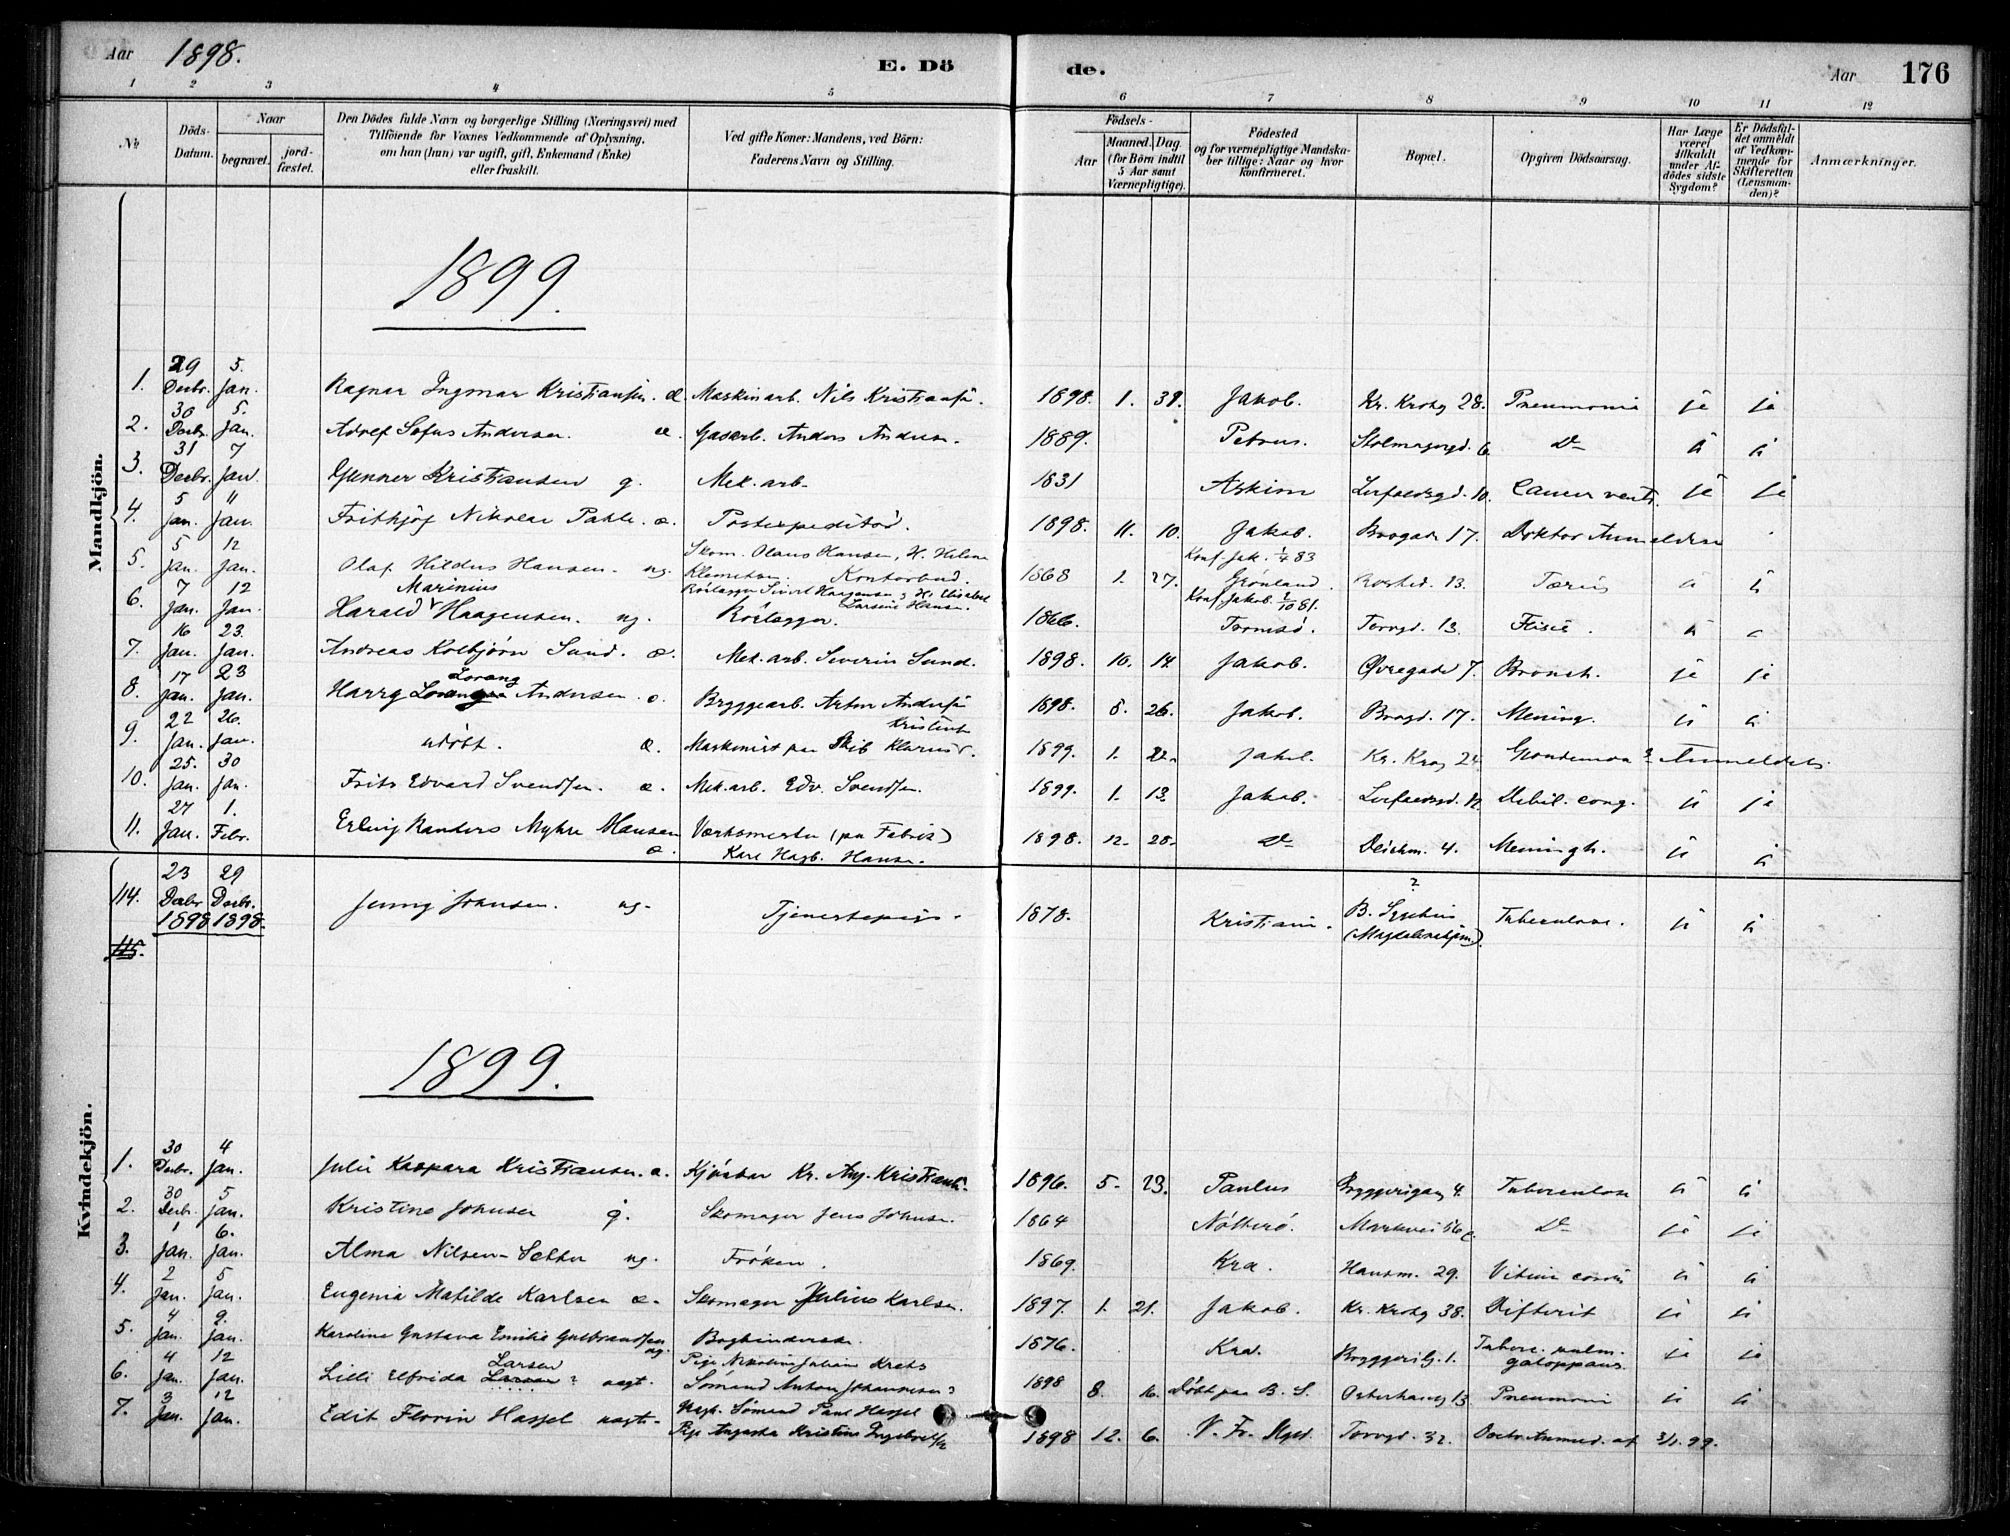 Aar 1898. E. Dö de. Aar 176
1 2 3 4 5 6 7 8 9 10 11 12
№ Döds-Datum. Naar begravet. jordfæstet. Den Dödes fulde Navn og borgerlige Stilling (Næringsvei) med Tilföiende for Voxnes Vedkommende af Oplysning, om han (hun) var ugift, gift, Enkemand (Enke) eller fraskilt. Ved gifte Koner: Mandens, ved Börn: Faderens Navn og Stilling. Födsels- Aar Maaned. Dag. (for Börn indtil 5 Aar samt Værnepligtige). Födested og for værnepligtige Mandskaber tillige: Naar og hvor konfirmeret. Bopæl. Opgiven Dödsaarsag. Har Læge været tilkaldt under Afdödes sidste Sygdom? Er Dödsfaldet anmeldt af Vedkommende for Skifteretten (Lensmanden)? Anmærkninger.
Mandkjön.
1899.
1. 29 Decbr. 5. Jan. Ragnar Ingmar Kristiansen. æ. Maskinarb. Nils Kristiansen. 1898. 1. 31. Jakob. Kr. Krohg 28. Pneumoni ja ja
2. 30 Decbr. 5. Jan. Adolf Sofus Andersen. æ. Gasarb. Anders Andersen. 1889. Petrus. Stolmagergd. 6. Do ja ja
3. 31 Decbr. 7 Jan. Gunner Kristiansen g. Mek. arb. 1831 Askim Lerfaldsgd. 10. Cancer ventr. ja ja
4. 5 Jan. 11 Jan. Frithjof Nikolai Pahle. æ. Postexpeditør. 1898. 11. 10. Jakob. Brogade 17. Doktor Anmeldelse
5. 5 Jan. 12 Jan. Olaf Hildus Hansen. ug. Skom. Olaus Hansen, H. Helene Klemetsen. Kontorbud. 1868 1. 27. Konf. Jak. 1/4 83 Grønland. 13. ja ja
6. 7 Jan. 12 Jan. Harald Marinius Haagensen. ug. Rörlægger Sivert Haagensen, H. Elisabet Larsine Hansen. Rörlægger. 1866. Konf. Jakob. 2/10 81. Tromsø. Torvgd. 13. ja
7. 16 Jan. 23. Jan. Andreas Kolbjørn Sund. æ. Mek. arb. Severin Sund. 1898. 10. 14. Jakob. Øvregade 7. Bronch. ja ja
8. 17 Jan. 23 Jan. Harry Lorang Andersen. Bryggearb. Anton Andersen 1898. 8. 26. Jakob. Brogd. 17. Mening. ja ja
9. 22 Jan. 26. Jan. udøbt. æ. Maskinist paa Skib 1899. 1. 22. Jakob. Kr. Krog 24 Anmeldelse
10. 25. Jan. 30 Jan. Frits Edvard Svendsen. æ. Mek. arb. Edv. Svendsen. 1899. 1. 13. Jakob. Lerfaldsgd. 12. Debil. cong. ja ja
11. 27 Jan. 1. Febr. Erling Randers Myhre Hansen æ. Værksmester (paa Fabrik) Karl Hagb. Hansen. 1898. 12. 28. Do Deichm. 4. Meningit. ja ja
Kvindekjön.
114. 23 Decbr 1898 29 Decbr. 1898. Jenny Johnsen. ug. Tjenestepige. 1878. Kristiania. ? B. Sygehus (Magdalenehjem). Tuberculose. ja ja
115.
1899.
1. 30 Decbr. 4 Jan. Julie Kaspara Kristiansen. æ. Kjøsker Kr. Aug. Kristiansen. 1896. 5. 23. Paulus Bryggerigang 4. Tuberculose ja ja
2. 30 Decbr. 5 Jan. Kristine Johnsen g. Skomager Jens Johnsen. 1864 Nøtterø. Markvei 56 c. Do ja ja
3. 1 Jan. 6. Jan. Alma Nilsen-Sætter ug. Frøken. 1869. Kra. Hausm. 29. Vitium cordis ja ja
4. 2 Jan. 5 Jan. Eugenia Matilde Karlsen æ. Skomager Julius Karlsen. 1897. 1. 21. Jakob. Kr. Krohg 38. Difterit ja ja
5. 4 Jan. 9. Jan. Karoline Gustava Emilie Gulbrandsen ug. Bogbinderske. 1876. Kra. Bryggerig. 1. Tuberc. pulm. galoppans. ja ja
6. 4 Jan. 12 Jan. Lilli Elfrida Larsen Larsen ? uægt. Pige Nikoline Juliane Krebs Sømand Anton Johannesen? 1898 8. 16. Døbt paa B. S. Osterhausg 13 Pneumoni ja ja
7. 3 Jan. 12 Jan. Edit Florin Hassel uægte. Ungk. Sømand Paul Hassel Pige Augusta Kristine Ingebretsen 1898 12. 6. V. Fr. Torvgd. 32. Doctor Anmeld. af 3/1. 99.